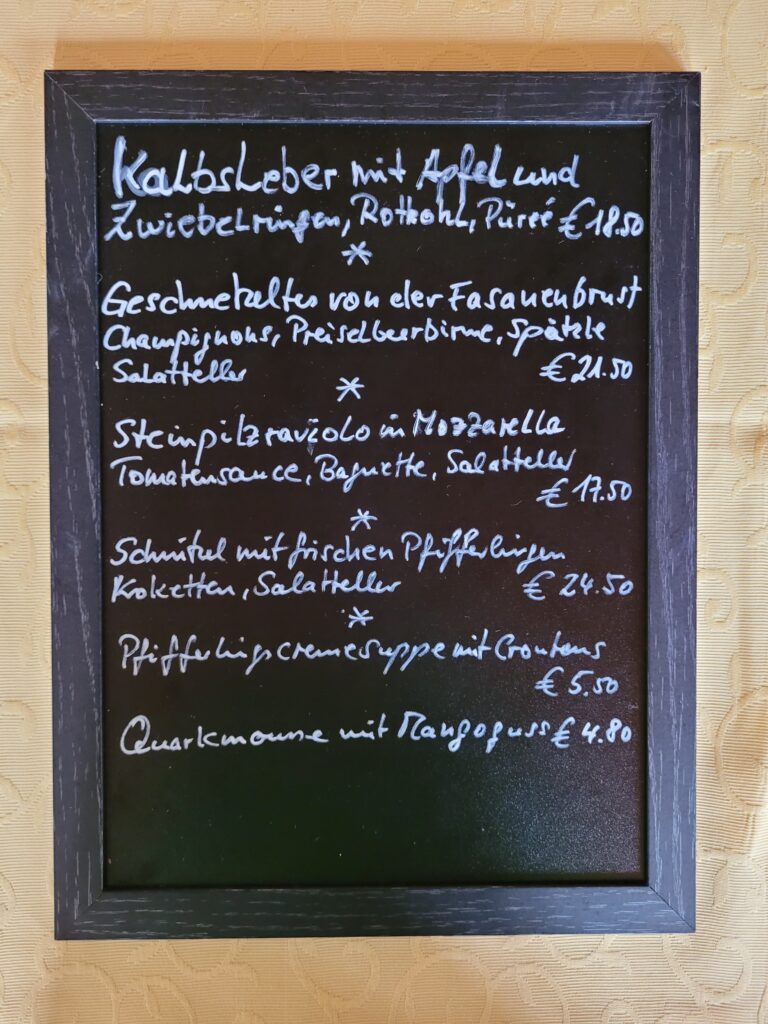 Kalbsleber mit Apfel und
Zwiebelringen, Rotkohl, Püreé € 18.50
*
Geschnetzeltes von der Fasanenbrust
Champignons, Preiselbeerbirne, Spätzle
Salatteller € 21.50
*
Steinpilzraviolo in Mozzarella
Tomatensauce, Baguette, Salatteller
€ 17.50
*
Schnitzel mit frischen Pfifferlingen
Koketten, Salatteller € 24.50
*
Pfifferlingscremesuppe mit Croutons
€ 5.50
Quarkmousse mit Mangoguss € 4.80